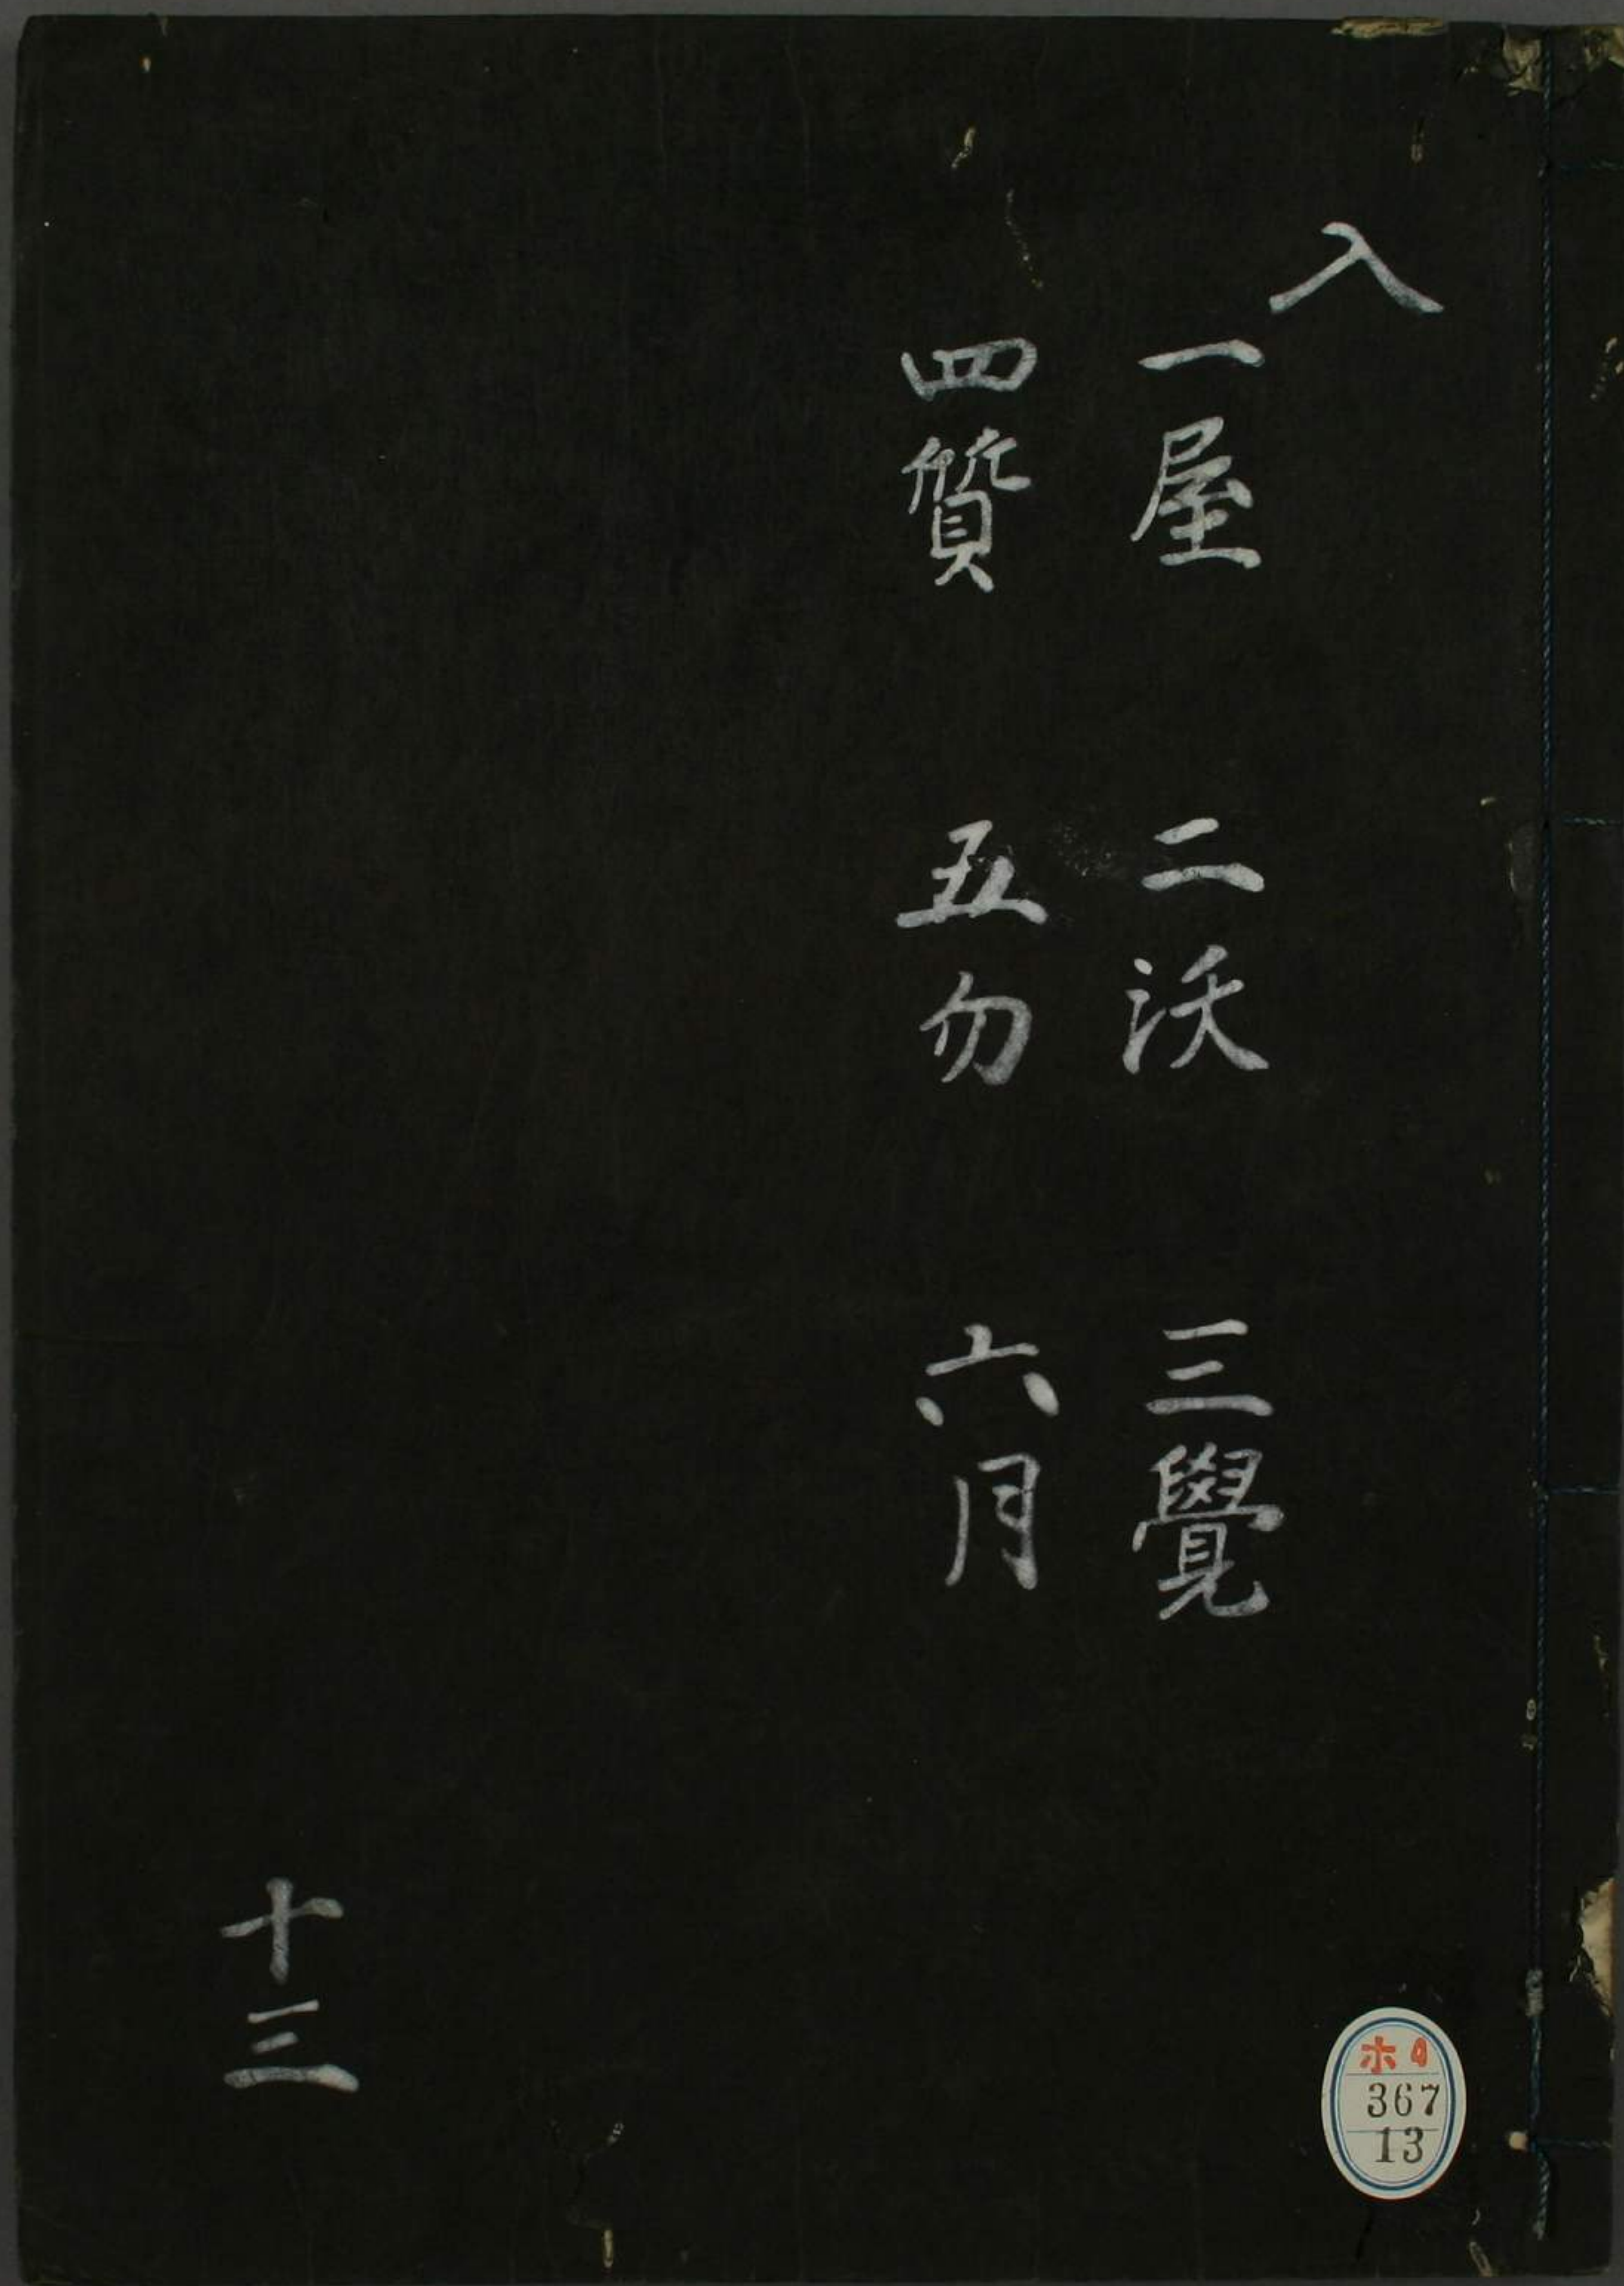 入
一屋 二沃 三覺
四質 五勿 六月
十三
ホ4
367
13